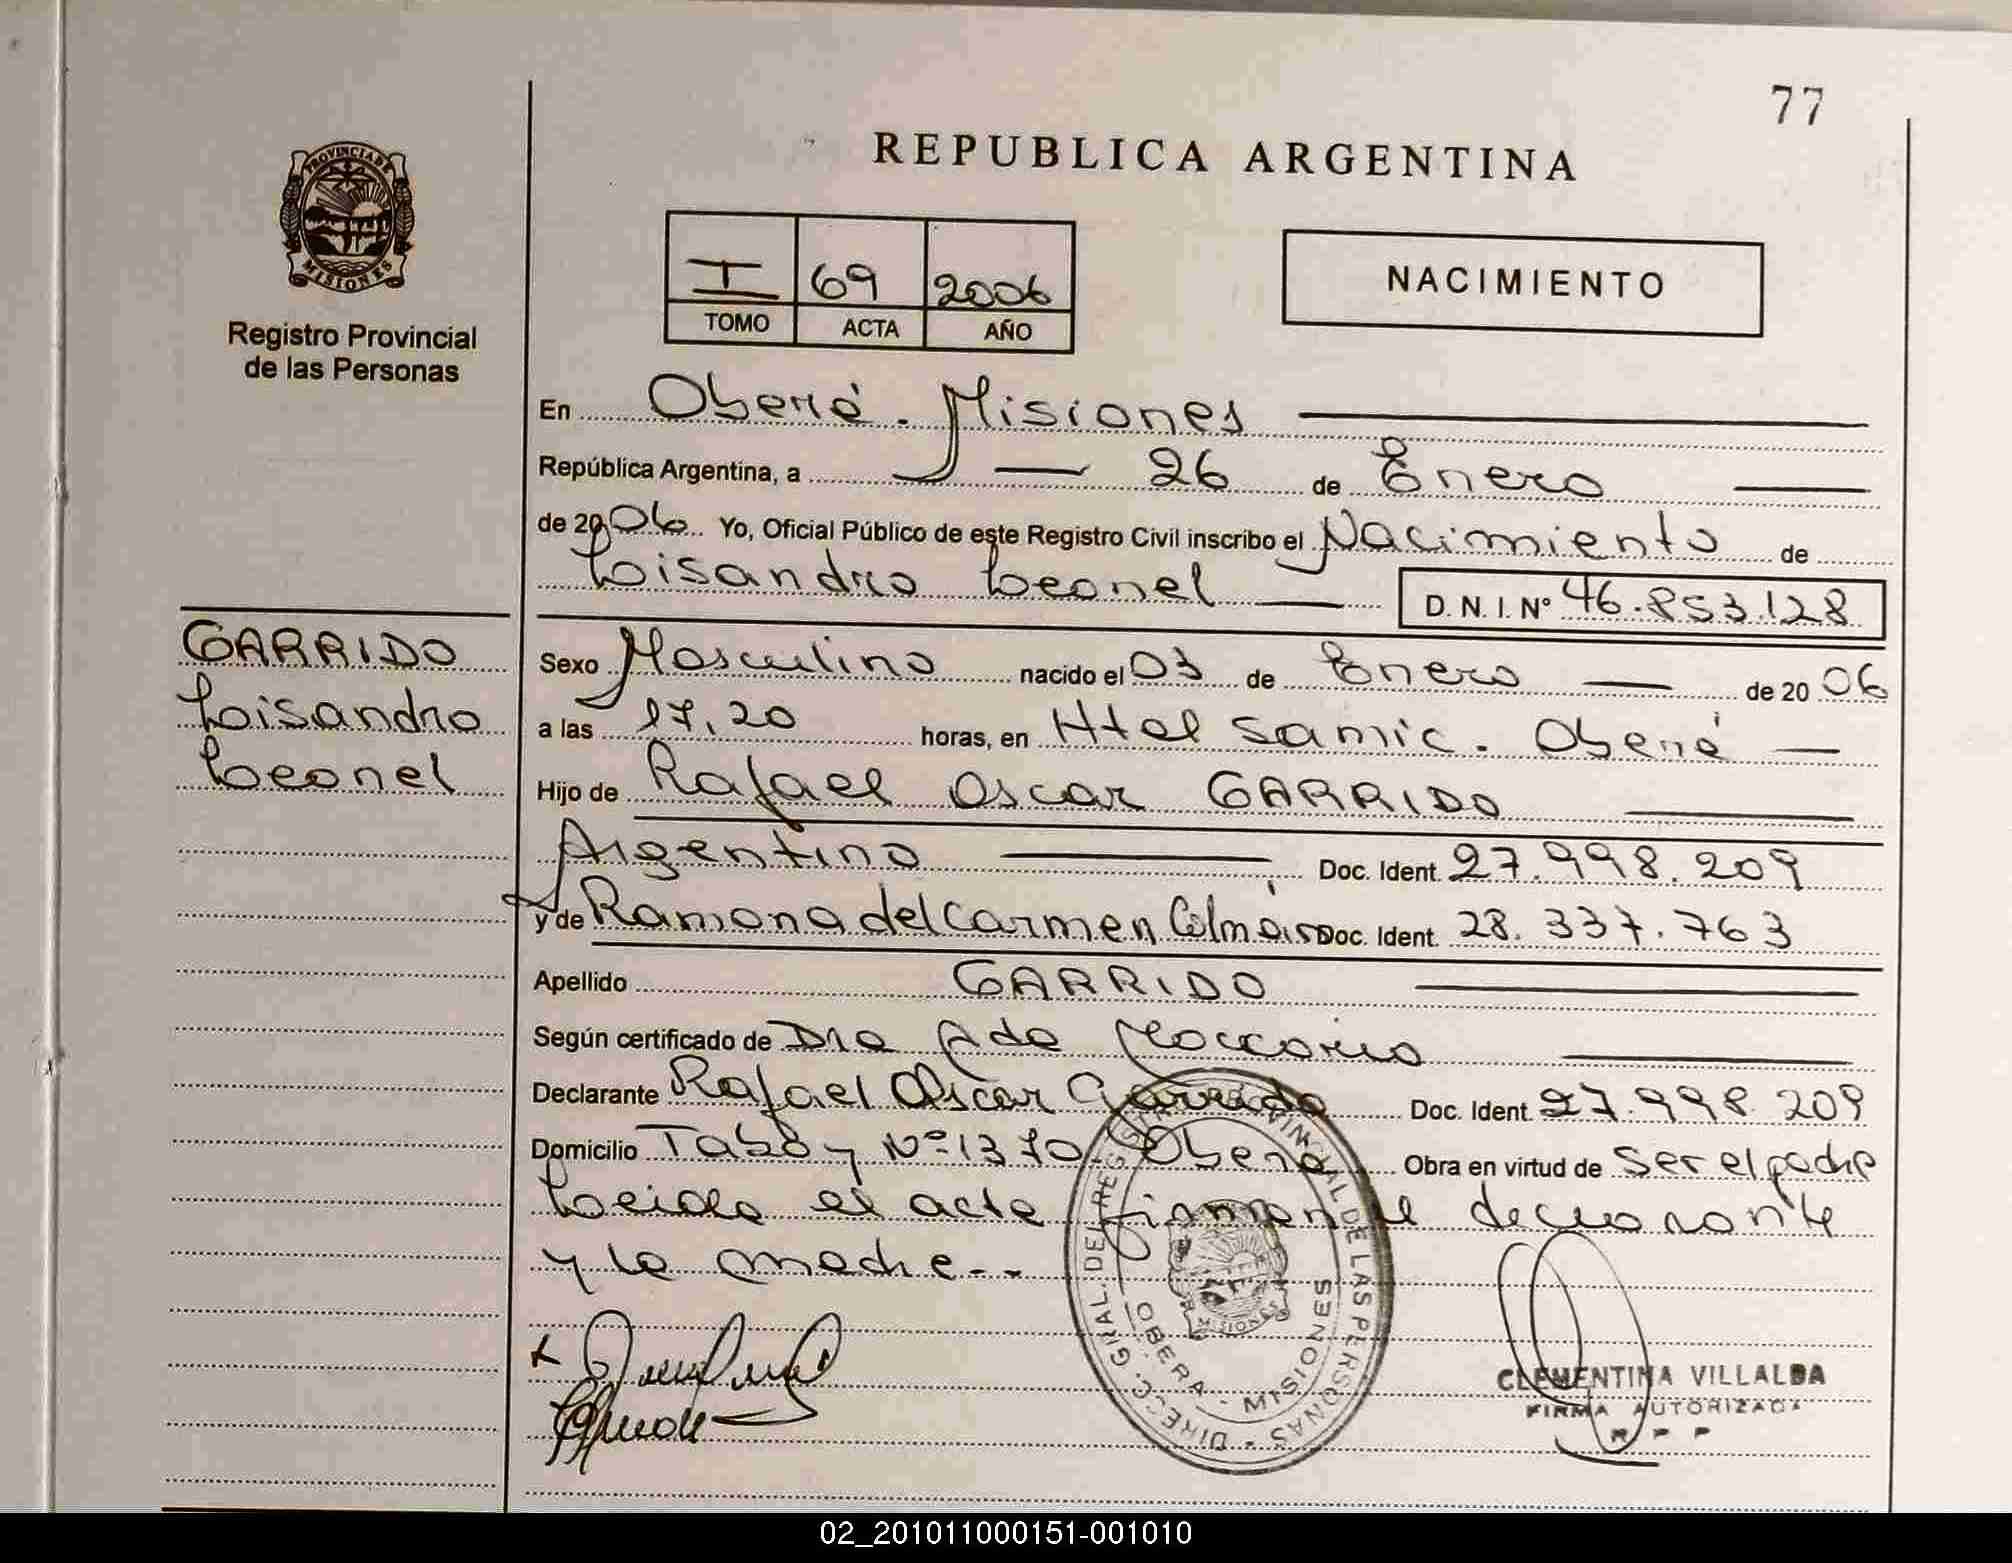 77
REPUBLICA ARGENTINA
PROVINCIA DE
MISIONES
Registro Provincial
de las Personas
I 69 2006
TOMO ACTA AÑO
NACIMIENTO
En Oberá. Misiones
República Argentina, a 26 de Enero
de 2006 Yo, Oficial Público de este Registro Civil inscribo el Nacimiento de
Lisandro Leonel D.N.I. Nº 46.853.128
GARRIDO
Lisandro
Leonel
Sexo Masculino nacido el 03 de Enero de 2006
a las 17,20 horas, en Htal Samic. Oberá
Hijo de Rafael Oscar GARRIDO
Argentino Doc. Ident. 27.998.209
y de Ramona del Carmen Doc. Ident. 28.337.763
Apellido GARRIDO
Según certificado de Dra Ada
Declarante Rafael Oscar Garrido Doc. Ident. 27.998.209
Domicilio Nº 1370 Oberá Obra en virtud de ser el padre
Leida el acta firman el declarante
y la madre--
DIRECC. GRAL. DEL REGISTRO PROVINCIAL DE LAS PERSONAS
OBERA - MISIONES
MISIONES
CLEMENTINA VILLALBA
FIRMA AUTORIZADA
R P P
02_201011000151-001010